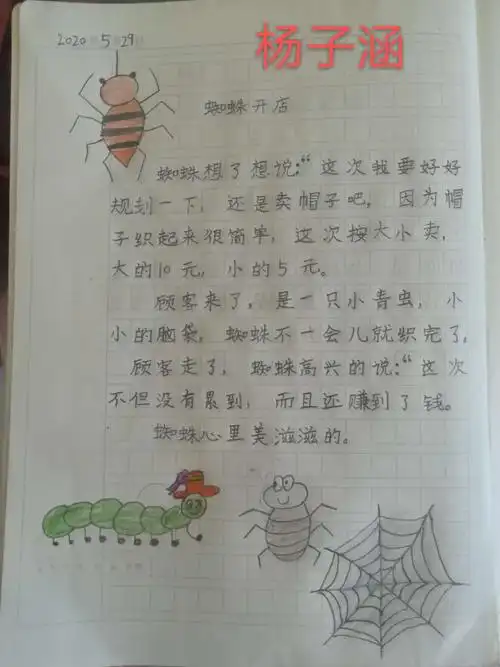 杨子涵
2020 5 29
蜘蛛开店
蜘蛛想了想说:“这次我要好好
规划一下,还是卖帽子吧,因为帽
子织起来很简单,这次按大小卖,
大的10元,小的5元。
顾客来了,是一只小青虫,小
小的脑袋,蜘蛛不一会儿就织完了。
顾客走了,蜘蛛高兴的说:“这次
不但没有累到,而且还赚到了钱。
蜘蛛心里美滋滋的。